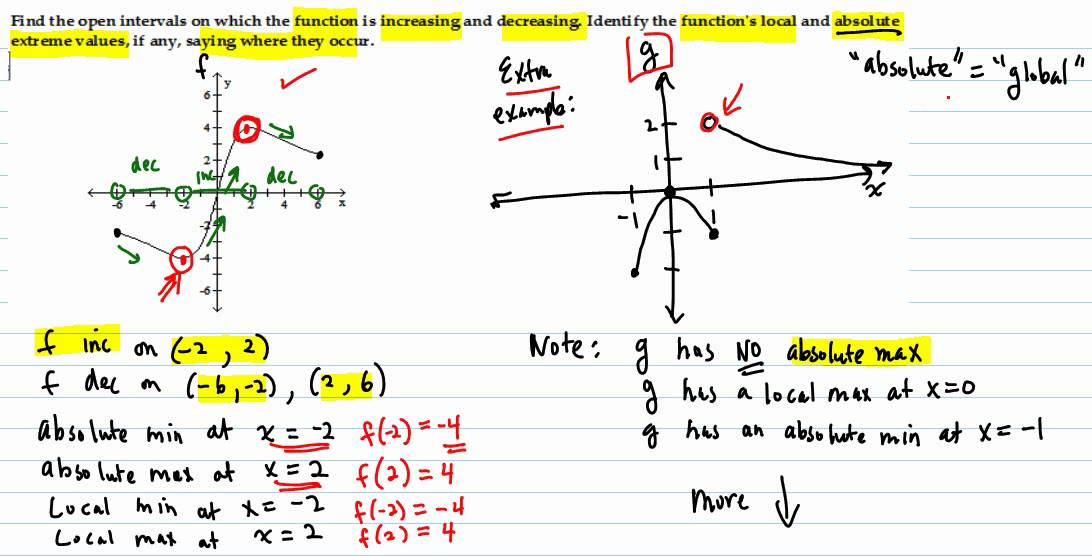 Find the open intervals on which the function is increasing and decreasing. Identify the function's local and absolute
extreme values, if any, saying where they occur.
f
y
6
4
2
-2
-4
-6
-6 -4 -2 2 4 6 x
dec inc dec
Extra
example:
g
2
1
-1 1
x
"absolute" = "global"
f inc on (-2, 2)
f dec on (-6,-2), (2, 6)
absolute min at x = -2 f(-2) = -4
absolute max at x = 2 f(2) = 4
Local min at x = -2 f(-2) = -4
Local max at x = 2 f(2) = 4
Note: g has NO absolute max
g has a local max at x=0
g has an absolute min at x = -1
more